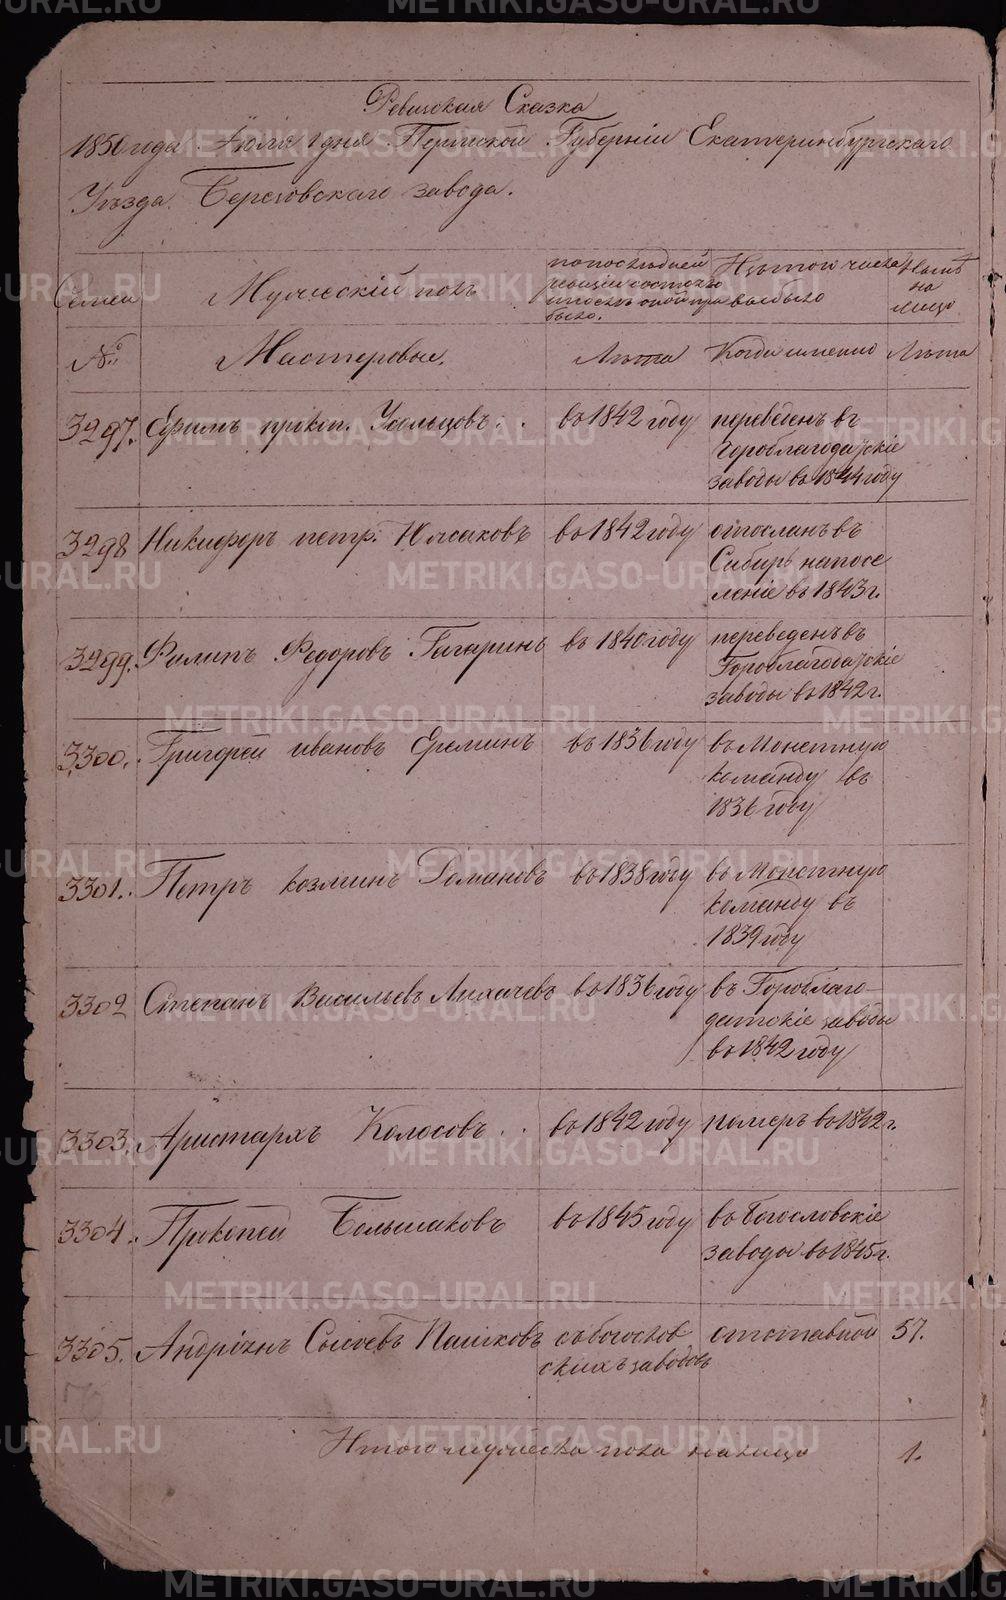 Ревизская Сказка
1850 года Июля 1 дня Пермской Губерніи Екатеринбургскаго
Уѣзда Березовскаго завода.
Семьи
Мужескій полъ
по послѣдней ревизіи состояло и послѣ оной прибыло.
Изъ того числа выбыло
Нынѣ на лицо
№
Мастеровые.
Лѣта
Когда именно
Лѣта
3297. Ефимъ прокоп. Усольцовъ. . въ 1842 году переведенъ въ
Гороблагодатскіе
заводы въ 1844 году
3298 Никифоръ петр. въ 1842 году отосланъ въ
Сибирь на посе
леніе въ 1843 г.
3299. Филипъ Федоровъ Гагаринъ въ 1840 году переведенъ въ
Гороблагодатскіе
заводы въ 1842 г.
3300. Григорей ивановъ Ереминъ въ 1836 году въ Монетную
команду въ
1836 году
3301. Петръ козминъ Романовъ въ 1838 году въ Монетную
команду въ
1839 году
3302 Степанъ Васильевъ Лихачевъ въ 1836 году въ Гороблаго-
датскіе заводы
въ 1842 году
3303. Аристархъ Колосовъ. . въ 1842 году померъ въ 1842 г.
3304. Прокопей Большаковъ въ 1845 году въ Богословскіе
заводы въ 1845 г.
3305. Андріянъ Сысоевъ Пашковъ съ богослов отставной 57.
скихъ заводовъ
Итого мужеска пола на лицо 1.
METRIKI.GASO-URAL.RU